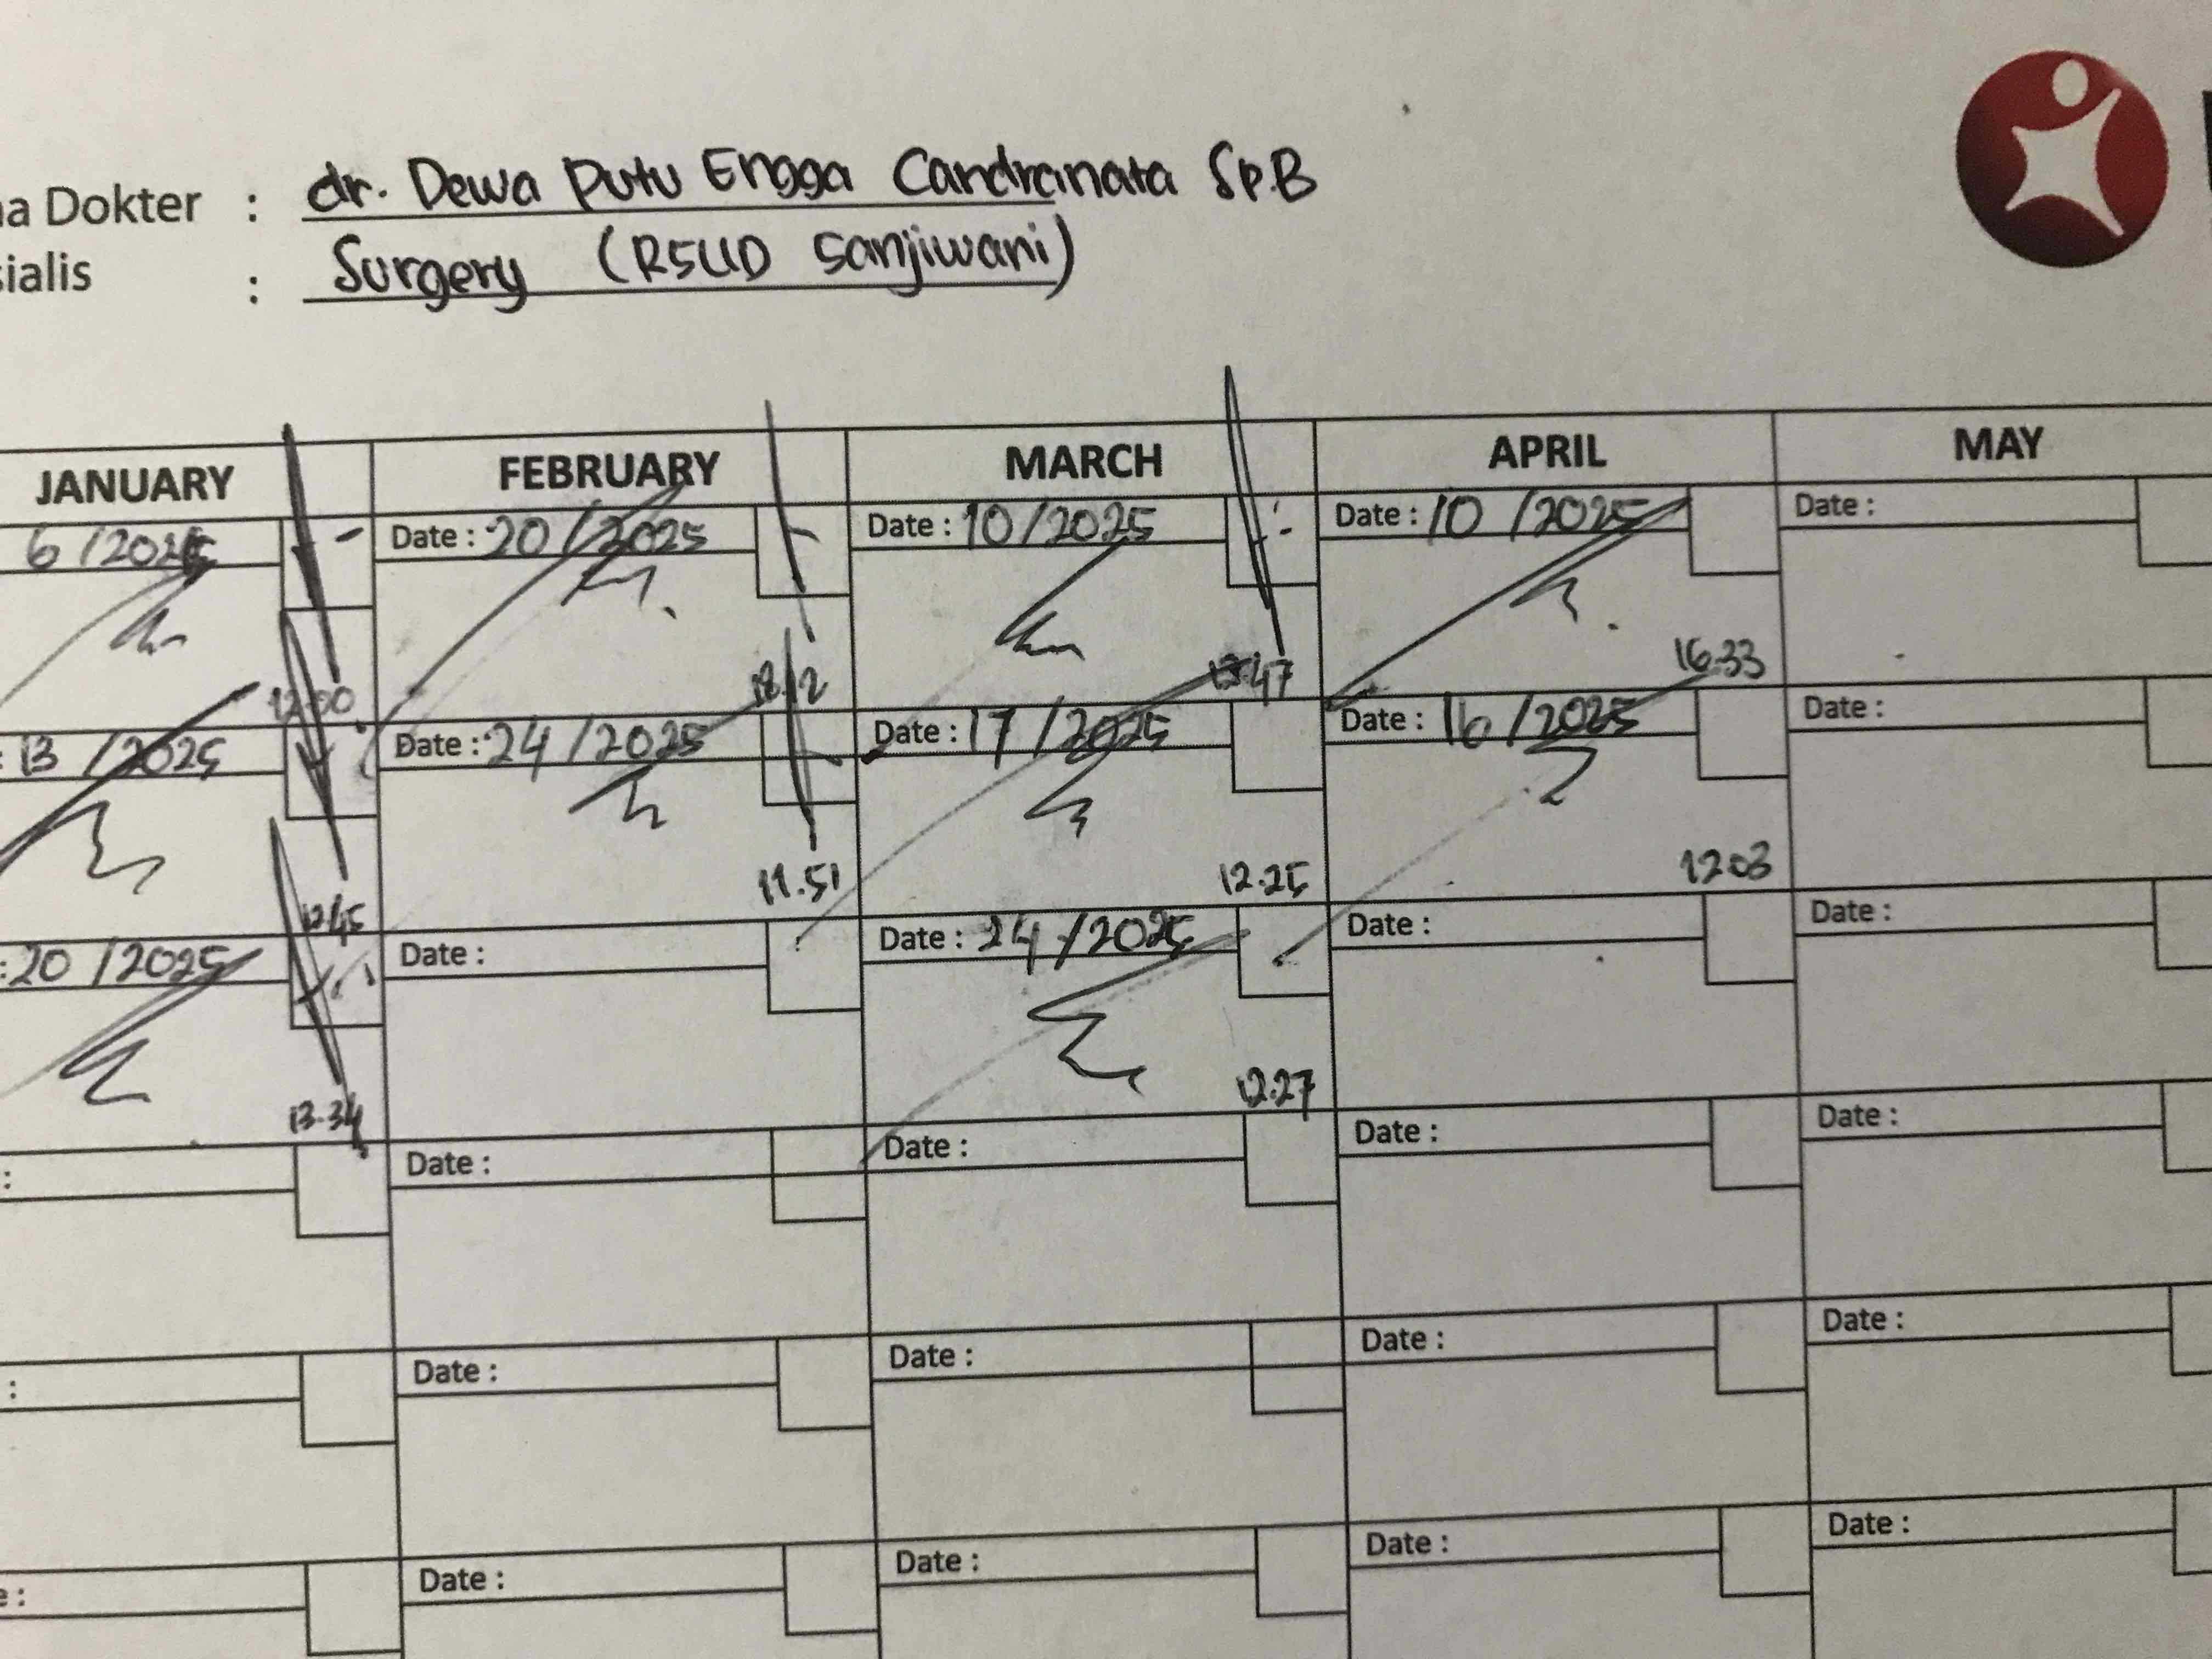 a Dokter : dr. Dewa Putu Engga Candranata SpB
ialis : Surgery (RSUD Sanjiwani)
JANUARY FEBRUARY MARCH APRIL MAY
6 /2025 Date : 20 /2025 Date : 10/2025 Date : 10 /2025 Date :
12.00 18.12 47 16.33
: 13 /2025 Date : 24 /2025 Date : 17 /2025 Date : 16 /2025 Date :
12.45 11.51 12.25 12.03
: 20 /2025 Date : Date : 24 /2025 Date : Date :
13.34 12.27
: Date : Date : Date : Date :
: Date : Date : Date : Date :
e : Date : Date : Date : Date :